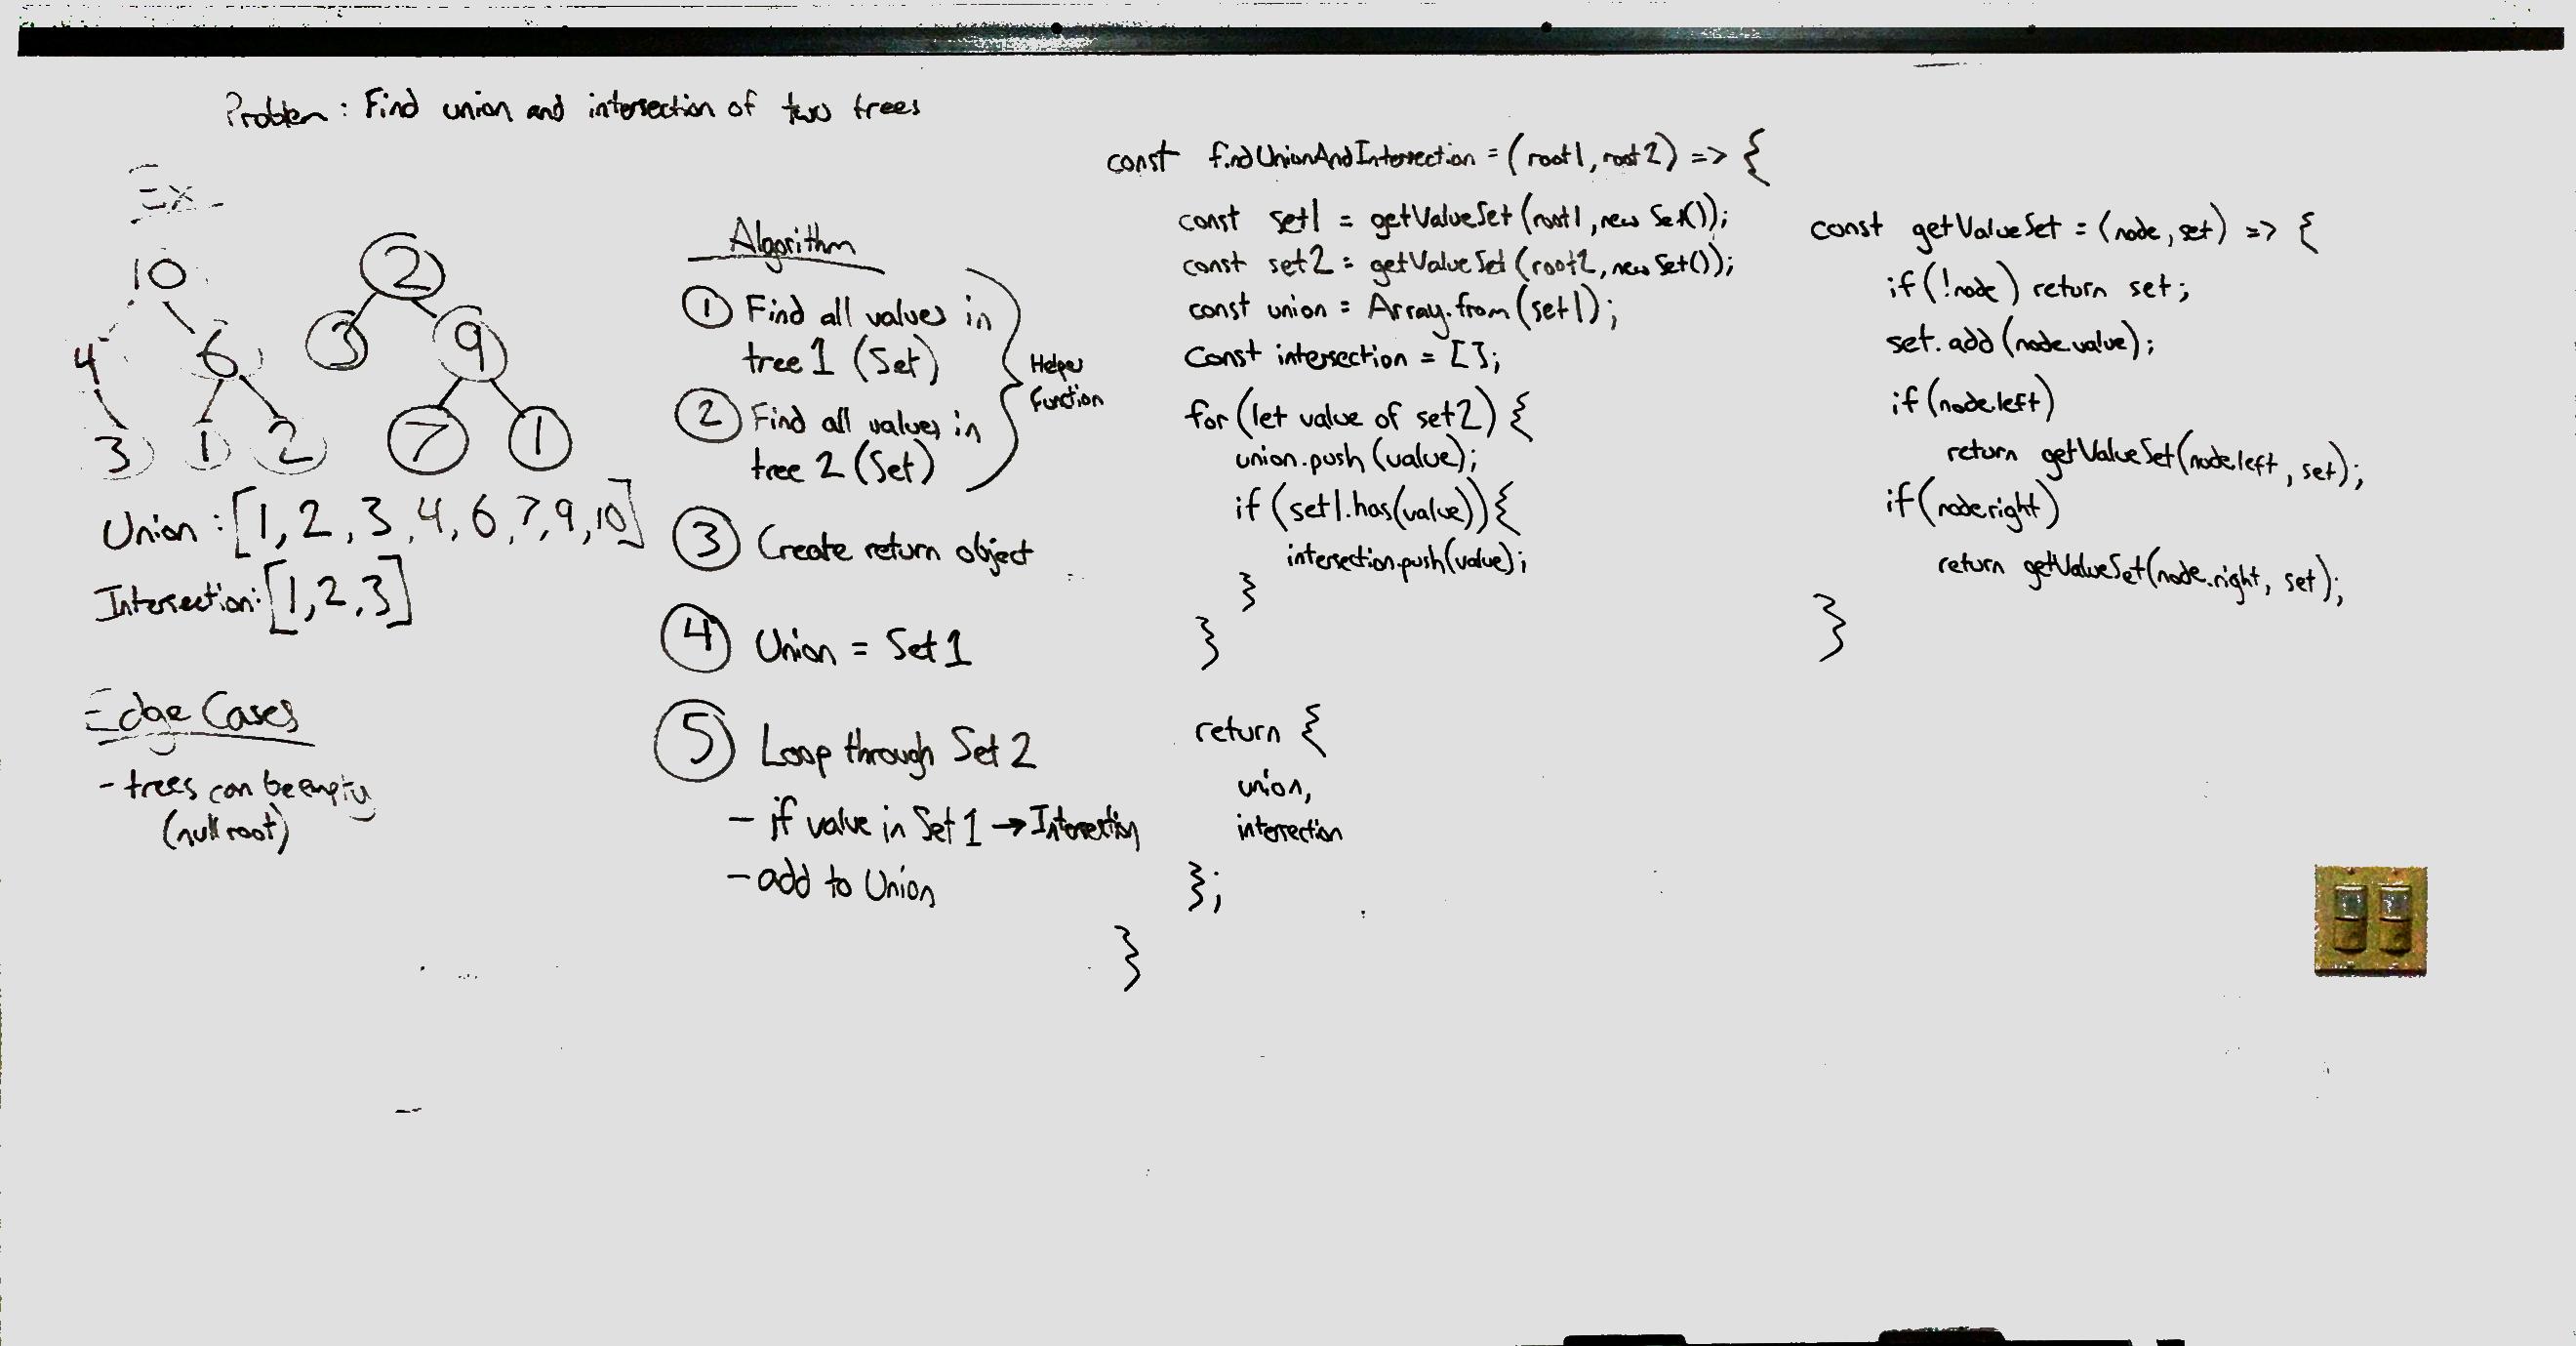 Problem: Find union and intersection of two trees
Ex
10
4 6
3 1 2
2
3 9
7 1
Union: [1, 2, 3, 4, 6, 7, 9, 10]
Intersection: [1, 2, 3]
Edge Cases
- trees can be empty
(null root)
Algorithm
① Find all values in
tree 1 (Set)
② Find all values in
tree 2 (Set)
Helper
function
③ Create return object
④ Union = Set 1
⑤ Loop through Set 2
- if value in Set 1 → Intersection
- add to Union
const findUnionAndIntersection = (root1, root2) => {
const set1 = getValueSet(root1, new Set());
const set2 = getValueSet(root2, new Set());
const union = Array.from(set1);
const intersection = [];
for (let value of set2) {
union.push(value);
if (set1.has(value)) {
intersection.push(value);
}
}
return {
union,
intersection
};
}
const getValueSet = (node, set) => {
if (!node) return set;
set.add(node.value);
if (node.left)
return getValueSet(node.left, set);
if (node.right)
return getValueSet(node.right, set);
}